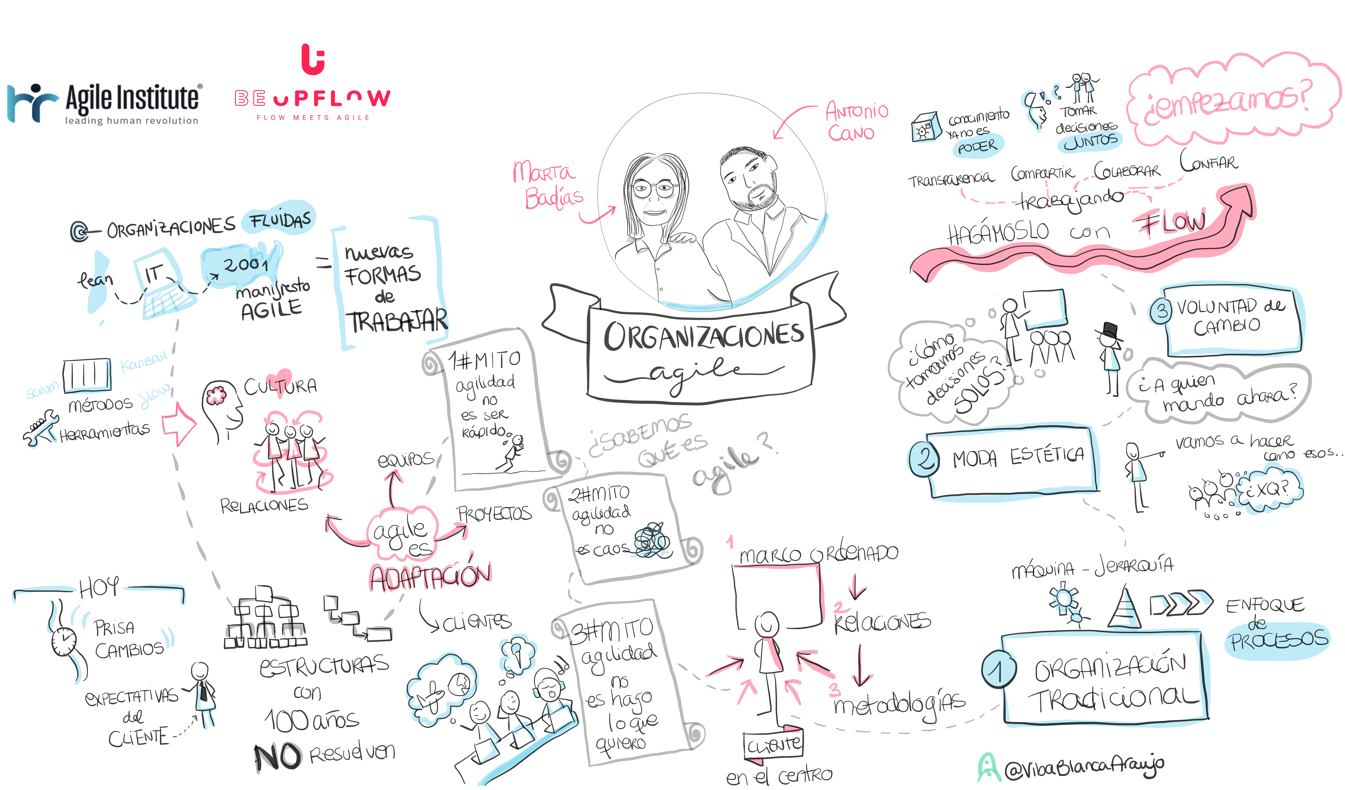 Agile Institute®
leading human revolution
BE UPFLOW
FLOW MEETS AGILE
Marta
Badías
Antonio
Cano
ORGANIZACIONES
agile
ORGANIZACIONES FLUIDAS
lean
IT
2001
manifesto
AGILE
=
nuevas
FORMAS
de
TRABAJAR
SCRUM
KANBAN
flow
MÉTODOS
Herramientas
CULTURA
RELACIONES
HOY
PRISA
CAMBIOS
EXPECTATIVAS
del
CLIENTE
ESTRUCTURAS
con
100 años
NO Resuelven
EQUIPOS
PROYECTOS
agile
es
ADAPTACIÓN
CLIENTES
¿SABEMOS
QUÉ ES
agile?
1#MITO
agilidad
no
es ser
rápido
2#MITO
agilidad
no
es caos
3#MITO
agilidad
no
es hago
lo que
quiero
1
marco ordenado
2
Relaciones
3
metodologías
CLIENTE
en el centro
MÁQUINA - JERARQUÍA
ENFOQUE
de
PROCESOS
1
ORGANIZACIÓN
TRADICIONAL
2
MODA ESTÉTICA
vamos a hacer
como esos..
¿XQ?
3
VOLUNTAD de
CAMBIO
¿A quien
mando ahora?
¿Cómo
tomamos
decisiones
SOLOS?
HAGÁMOSLO con FLOW
trabajando
TRANSPARENCIA
COMPARTIR
COLABORAR
CONFIAR
conocimiento
YA no es
PODER
TOMAR
decisiones
JUNTOS
¿EMPEZAMOS?
@VibaBlancaAraujo